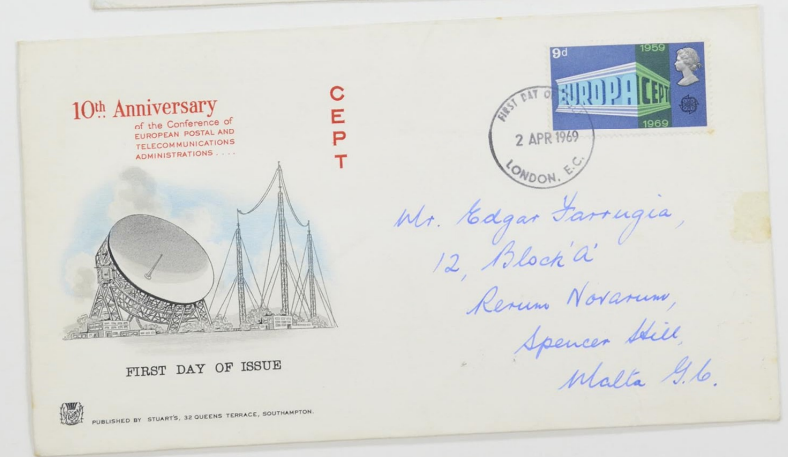 10th Anniversary
of the Conference of
EUROPEAN POSTAL AND
TELECOMMUNICATIONS
ADMINISTRATIONS . . . .
C
E
P
T
9d
1959
EUROPA CEPT
1969
FIRST DAY OF
2 APR 1969
LONDON, E.C.
Mr. Edgar Farrugia,
12, Block 'A'
Rerum Novarum,
Spencer Hill,
Malta G.C.
FIRST DAY OF ISSUE
PUBLISHED BY STUART'S, 32 QUEENS TERRACE, SOUTHAMPTON.